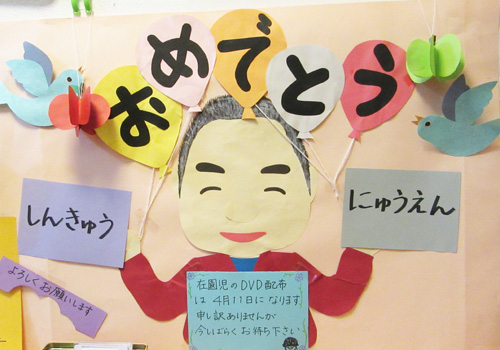 おめでとう
しんきゅう
にゅうえん
よろしくお願いします
在園児のDVD配布
は4月11日になります
申し訳ありませんが
今しばらくお待ち下さい